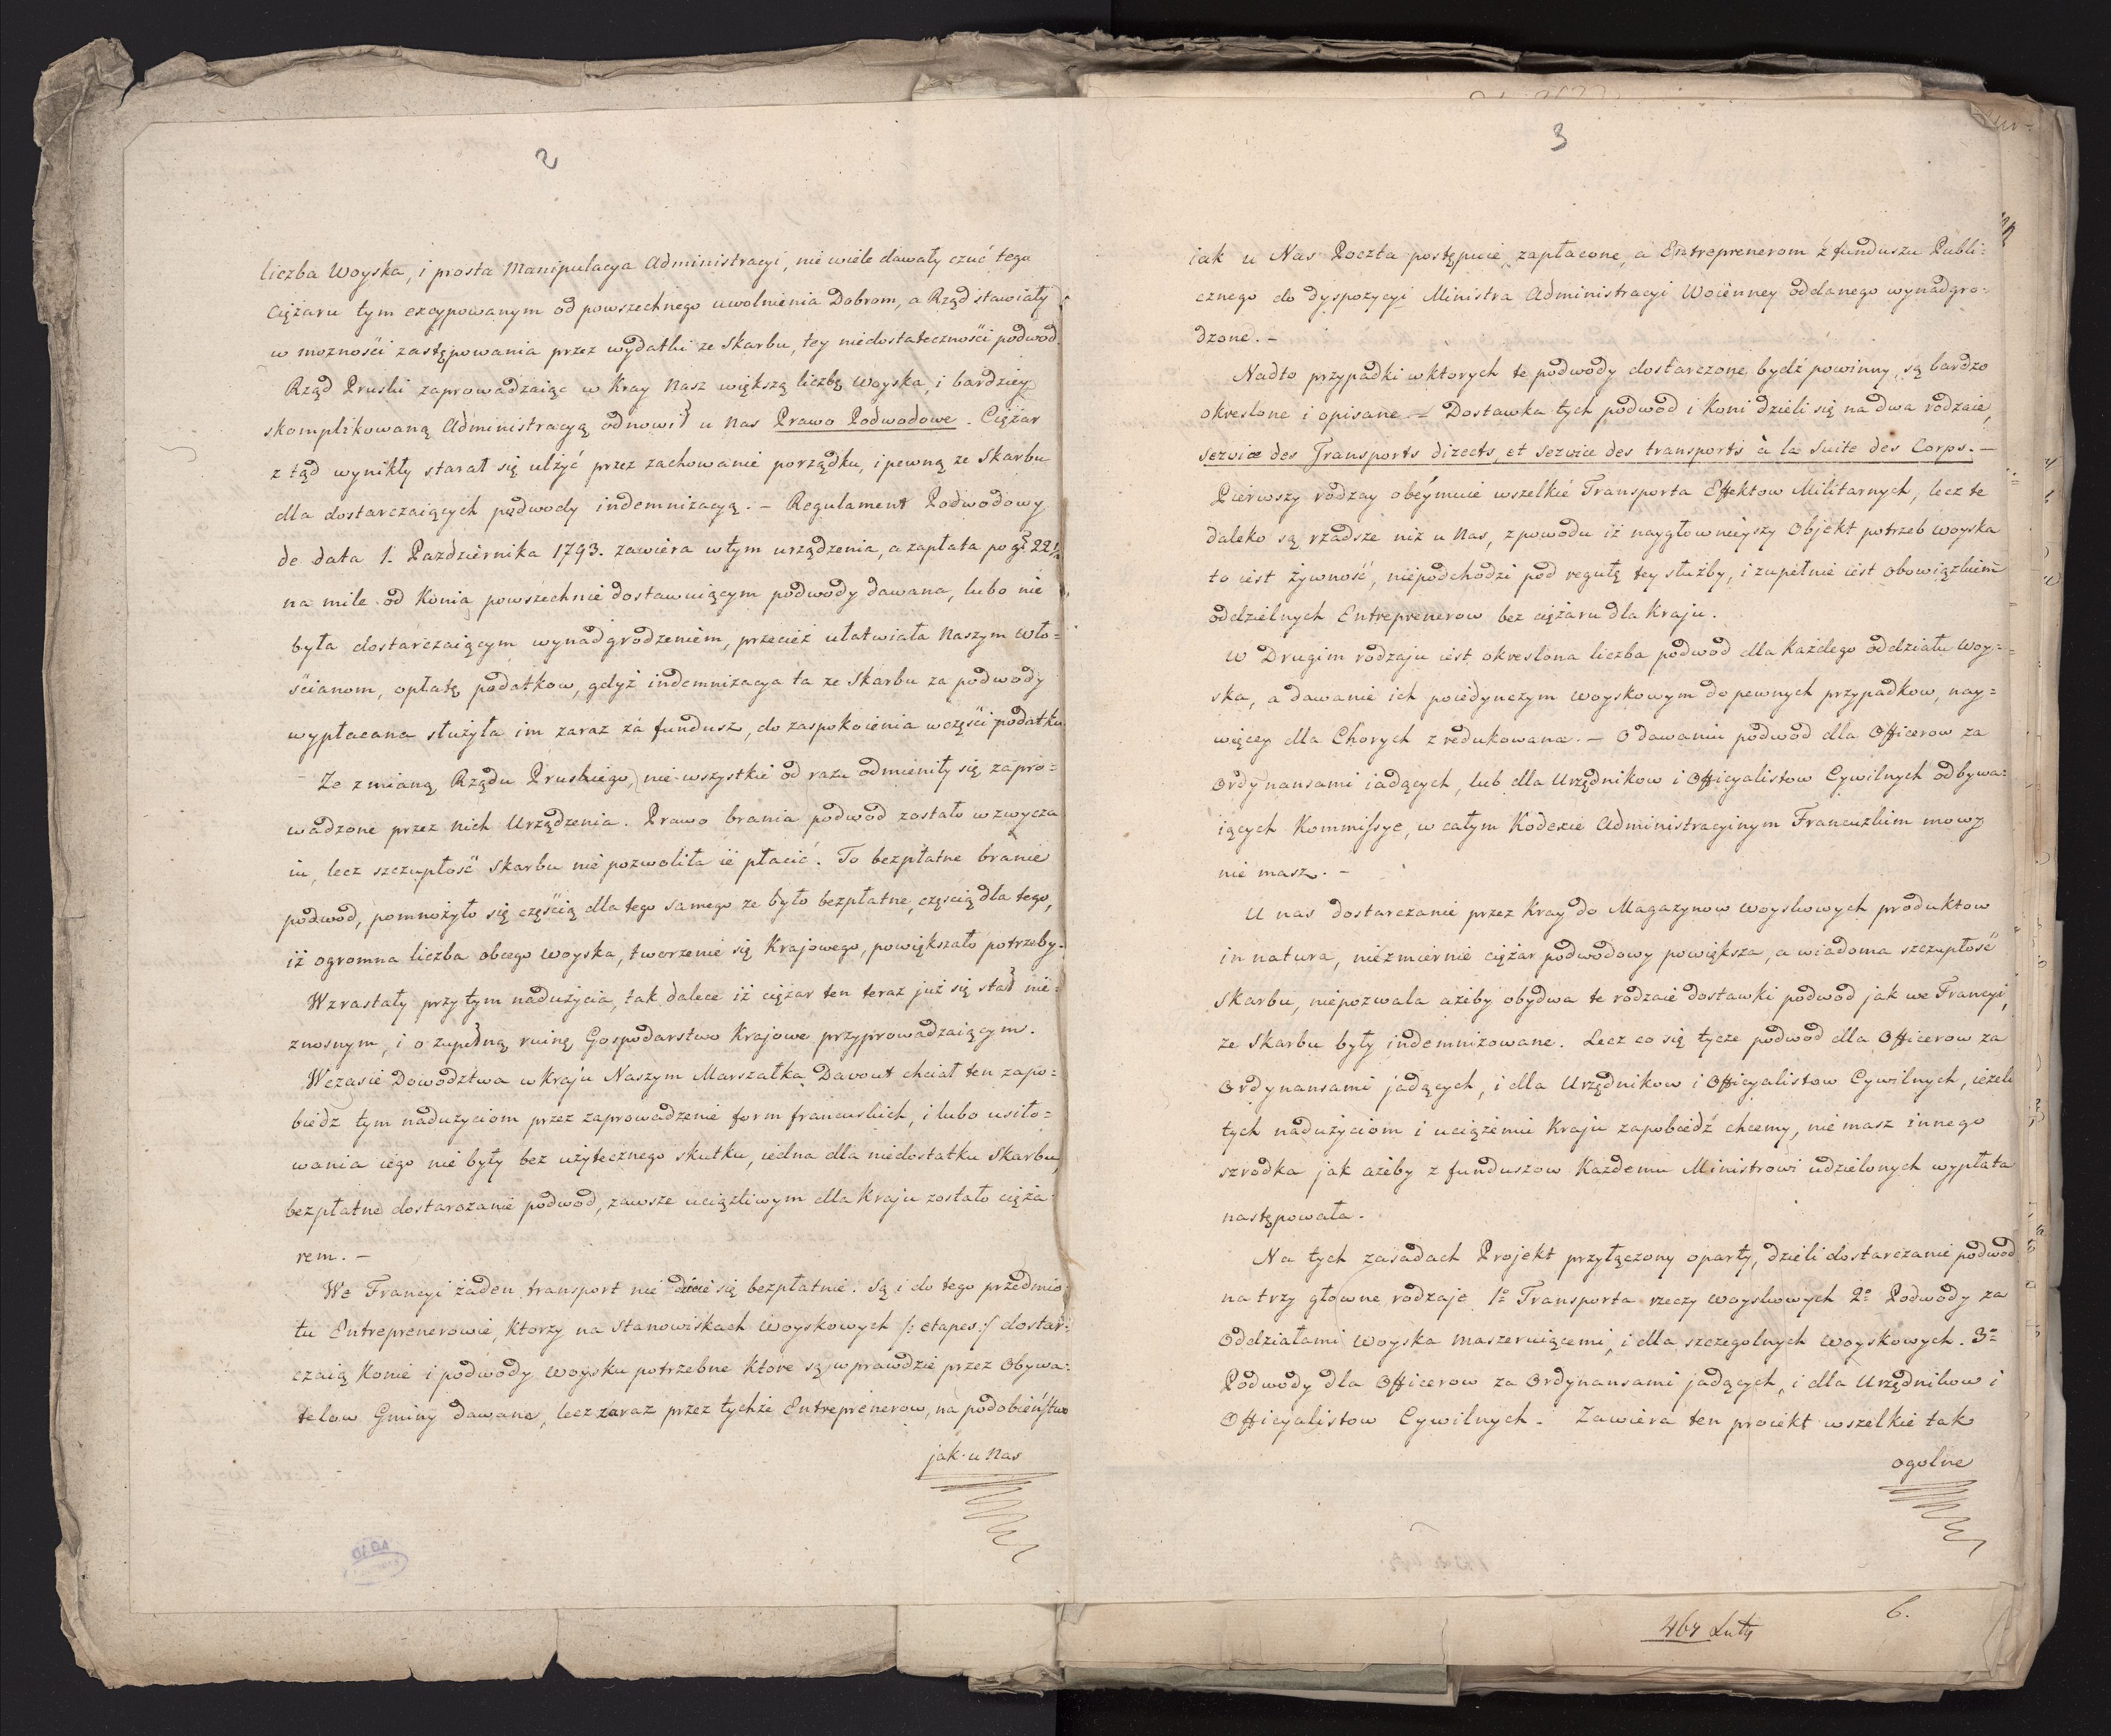 2
liczba Woyska, i prosta Manipulacya Administracyi, nie wiele dawały czuć tego
Ciężaru tym excypowanym od powszechnego uwolnienia Dobrom, a Rząd stawiały
w mozności zastępowania przez wydatki ze Skarbu, tey niedostateczności podwod.
Rząd Pruski zaprowadzaiąc w Kray Nasz większą liczbę Woyska, i bardziey
skomplikowaną Administracyą odnowił u nas Prawo Podwodowe. Ciężar
z tąd wynikły starał się ulżyć przez zachowanie porządku, i pewną ze Skarbu
dla dostarczaiących podwody indemnizacyą. – Regulament Podwodowy
de data 1. Pazdziernika 1793. zawiera w tym urządzenia, a zapłata po gł 22½
na mile od Konia powszechnie dostawuiącym podwody dawana, lubo nie
była dostarczaiącym wynadgrodzeniem, przecież ułatwiała Naszym Wło=
ścianom, opłatę podatkow, gdyż indemnizacya ta ze Skarbu za podwody
wypłacana służyła im zaraz za fundusz, do zaspokoienia w części podatku
Ze zmianą Rządu Pruskiego, nie wszystkie od razu odmieniły się zapro=
wadzone przez nich Urządzenia. Prawo brania podwod zostało w zwycza
iu, lecz szczupłość Skarbu nie pozwoliła ie płacić. To bezpłatne branie
podwod, pomnożyło się częścią dla tego samego ze było bezpłatne, częscią dla tego,
iż ogromna liczba obcego Woyska, tworzenie się Krajowego, powiększało potrzeby.
Wzrastały przy tym nadużycia, tak dalece iż ciężar ten teraz już się stał nie=
znosnym, i o zupełną ruinę Gospodarstwo Krajowe przyprowadzaiącym.
W czasie Dowodztwa w Kraju Naszym Marszałka Davout chciał ten zapo=
biedz tym nadużyciom przez zaprowadzenie form francuskich, i lubo usiło=
wania iego nie były bez użytecznego skutku, iedna dla niedostatku Skarbu,
bezpłatne dostarczanie podwod, zawsze uciążliwym dla Kraju zostało cięża=
rem. –
We Francyi żaden transport nie dzieie się bezpłatnie. Są i do tego przedmio=
tu Entreprenerowie, ktorzy na Stanowiskach Woyskowych /: etapes :/ dostar=
czaią Konie i podwody Woysku potrzebne ktore są w prawdzie przez Obywa=
telow Gminy dawane, lecz zaraz przez tychże Entreprenerow, na podobieństwo
jak u Nas
3
iak u Nas Poczta postępuie, zapłacone, a Entreprenerom z funduszu Publi=
cznego do dyspozycyi Ministra Administracyi Woienney oddanego wynadgro=
dzone. –
Nadto przypadki w ktorych te podwody dostarczone bydź powinny, są bardzo
okreslone i opisane – Dostawka tych podwod i Koni dzieli się na dwa rodzaie,
Service des Transports directs, et Service des transports à la Suite des Corps. –
Pierwszy rodzay obeymuie wszelkie Transporta Effektow Militarnych, lecz te
daleko są rzadsze niz u Nas, z powodu iż naygłownieyszy Objekt potrzeb Woyska
to iest żywność, niepodchodzi pod regułę tey służby, i zupełnie iest obowiązkiem
oddzielnych Entreprenerow bez ciężaru dla Kraju.
W Drugim rodzaju iest okreslona liczba podwod dla Każdego oddziału Woy=
ska, a dawanie ich poiedynczym Woyskowym do pewnych przypadkow, nay=
więcey dla Chorych zredukowane. – O dawaniu podwod dla Officerow za
Ordynansami iadących, lub dla Urzędnikow i Officyalistow Cywilnych odbywa=
iących Kommissye, w całym Kodexie Administracyinym Francuzkim mowy
nie masz. –
U nas dostarczanie przez Kray do Magazynow woyskowych produktow
in natura, niezmiernie ciężar podwodowy powiększa, a wiadoma szczupłość
Skarbu, niepozwala ażeby obydwa te rodzaie dostawki podwod jak we Francyi,
ze Skarbu były indemnizowane. Lecz co się tycze podwod dla Officerow za
Ordynansami jadących, i dla Urzędnikow i Officyalistow Cywilnych, ieżeli
tych nadużyciom i uciążeniu Kraju zapobiedź chcemy, nie masz innego
szrodka jak ażeby z funduszow Każdemu Ministrowi udzielonych wypłata
następowała.
Na tych zasadach Projekt przyłączony oparty, dzieli dostarczanie podwod
na trzy głowne rodzaje 1º Transporta rzeczy Woyskowych 2º Podwody za
Oddziałami Woyska maszeruiącemi, i dla szczegolnych Woyskowych. 3º
Podwody dla Officerow za Ordynansami jadących, i dla Urzędnikow i
Officyalistow Cywilnych. Zawiera ten proiekt wszelkie tak
ogolne
464 Luty
6.